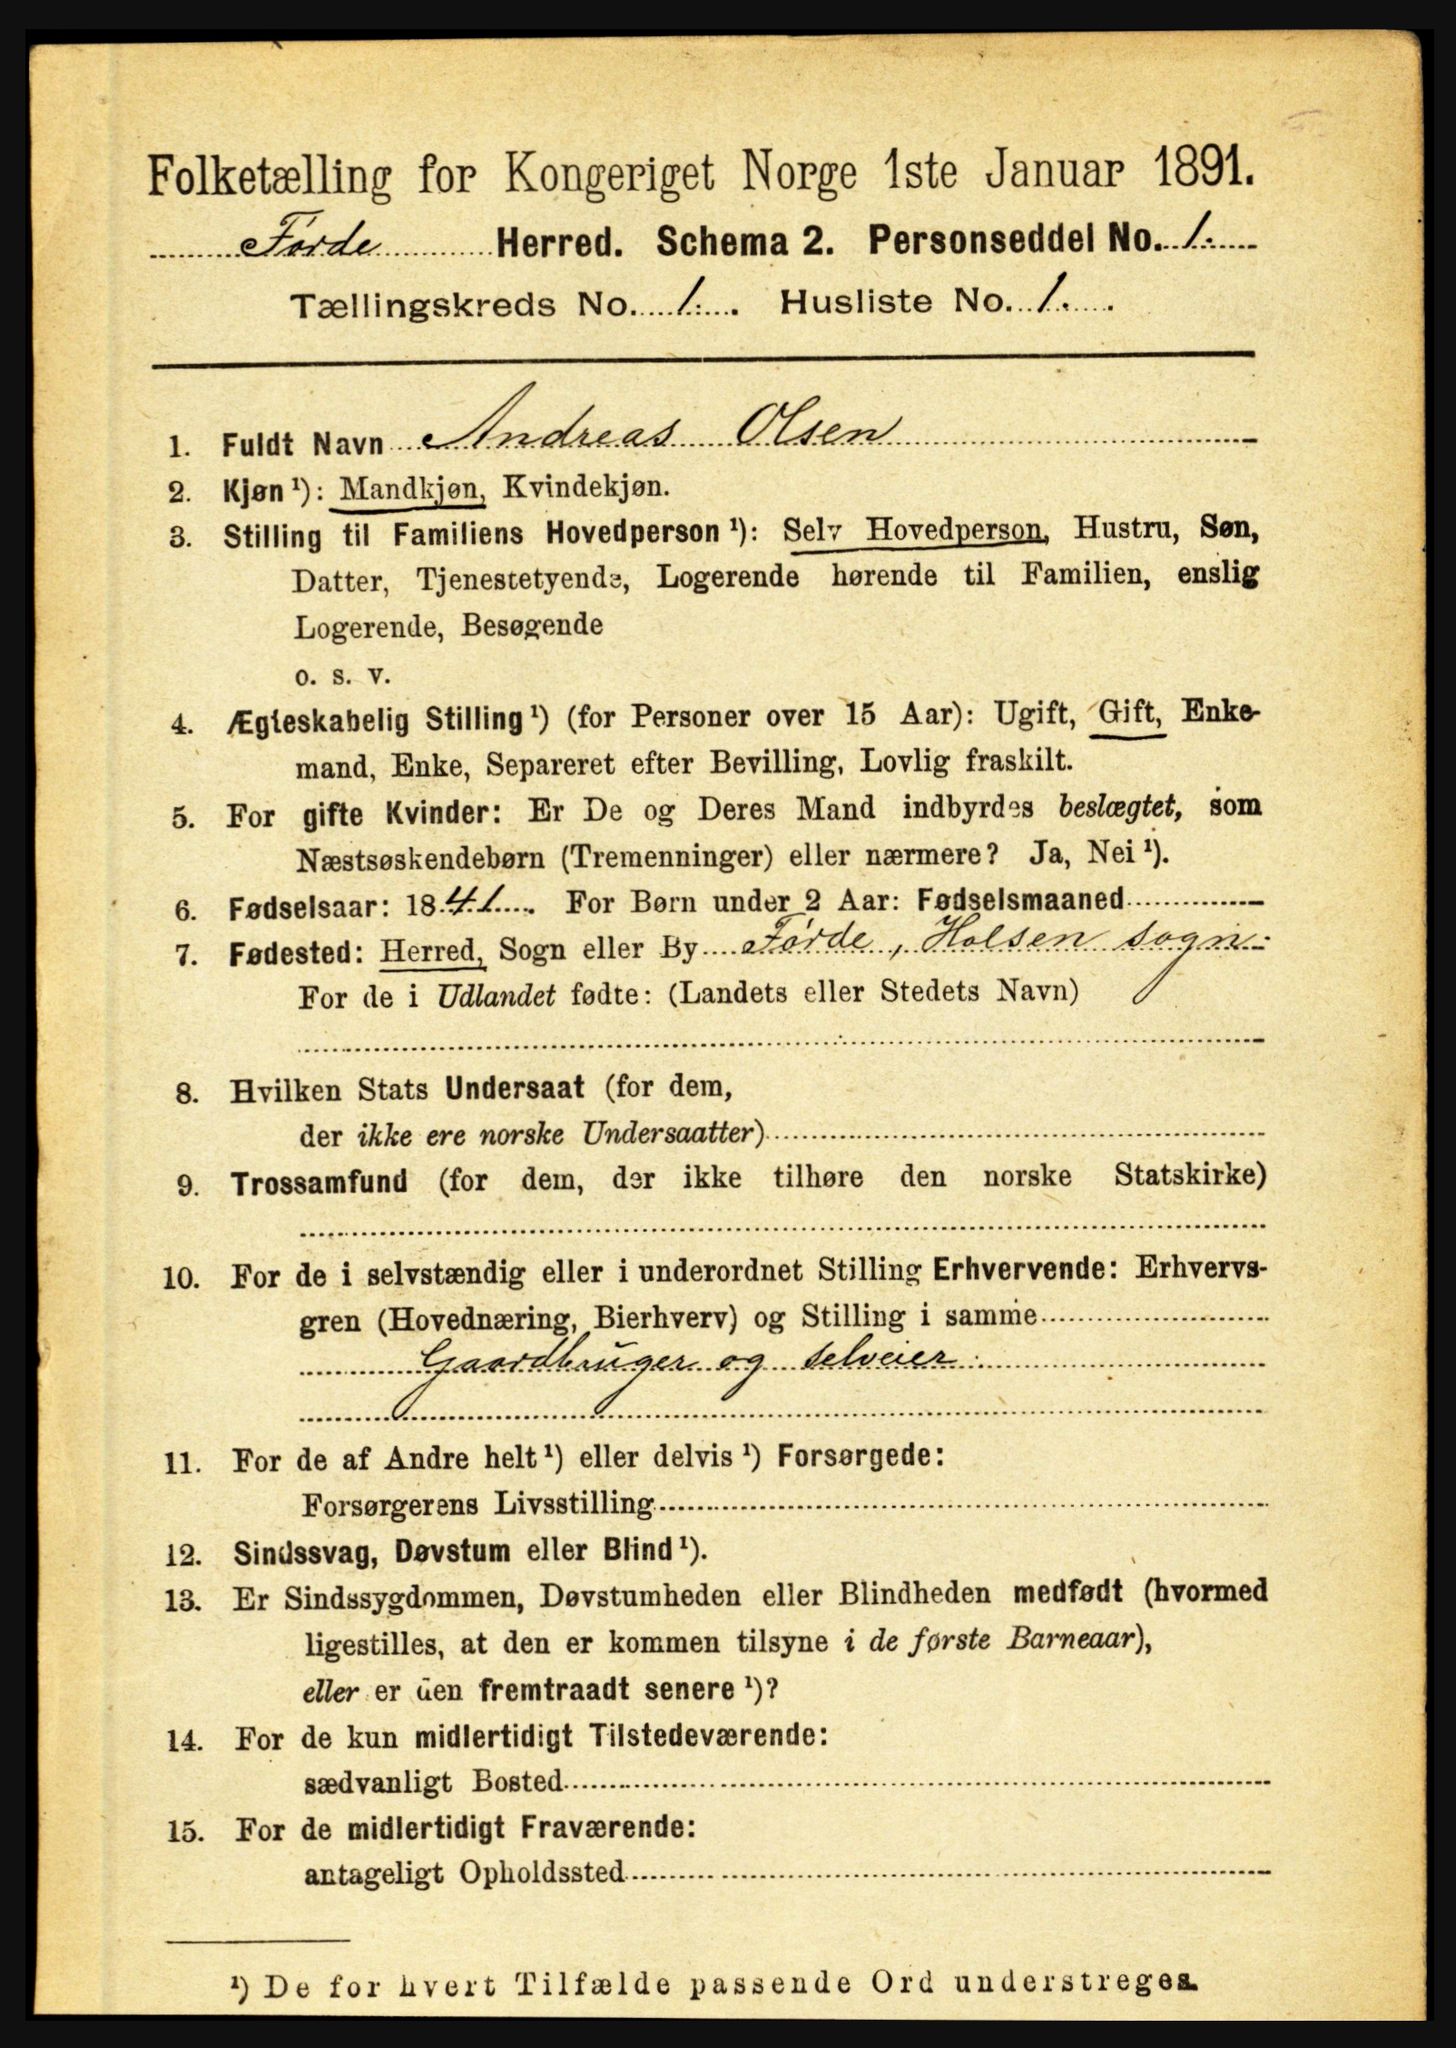 Folketælling for Kongeriget Norge 1ste Januar 1891.
Førde Herred. Schema 2. Personseddel No. 1.
Tællingskreds No. 1. Husliste No. 1.
1. Fuldt Navn Andreas Olsen
2. Kjøn ¹): Mandkjøn, Kvindekjøn.
3. Stilling til Familiens Hovedperson ¹): Selv Hovedperson, Hustru, Søn,
Datter, Tjenestetyende, Logerende hørende til Familien, enslig
Logerende, Besøgende
o. s. v.
4. Ægteskabelig Stilling ¹) (for Personer over 15 Aar): Ugift, Gift, Enke-
mand, Enke, Separeret efter Bevilling, Lovlig fraskilt.
5. For gifte Kvinder: Er De og Deres Mand indbyrdes beslægtet, som
Næstsøskendebørn (Tremenninger) eller nærmere? Ja, Nei ¹).
6. Fødselsaar: 1841. For Børn under 2 Aar: Fødselsmaaned
7. Fødested: Herred, Sogn eller By Førde, Holsen sogn.
For de i Udlandet fødte: (Landets eller Stedets Navn)
8. Hvilken Stats Undersaat (for dem,
der ikke ere norske Undersaatter)
9. Trossamfund (for dem, der ikke tilhøre den norske Statskirke)
10. For de i selvstændig eller i underordnet Stilling Erhvervende: Erhvervs-
gren (Hovednæring, Bierhverv) og Stilling i samme
Gaardbruger og selveier.
11. For de af Andre helt ¹) eller delvis ¹) Forsørgede:
Forsørgerens Livsstilling
12. Sindssvag, Døvstum eller Blind ¹).
13. Er Sindssygdommen, Døvstumheden eller Blindheden medfødt (hvormed
ligestilles, at den er kommen tilsyne i de første Barneaar),
eller er den fremtraadt senere ¹)?
14. For de kun midlertidigt Tilstedeværende:
sædvanligt Bosted
15. For de midlertidigt Fraværende:
antageligt Opholdssted
¹) De for hvert Tilfælde passende Ord understreges.